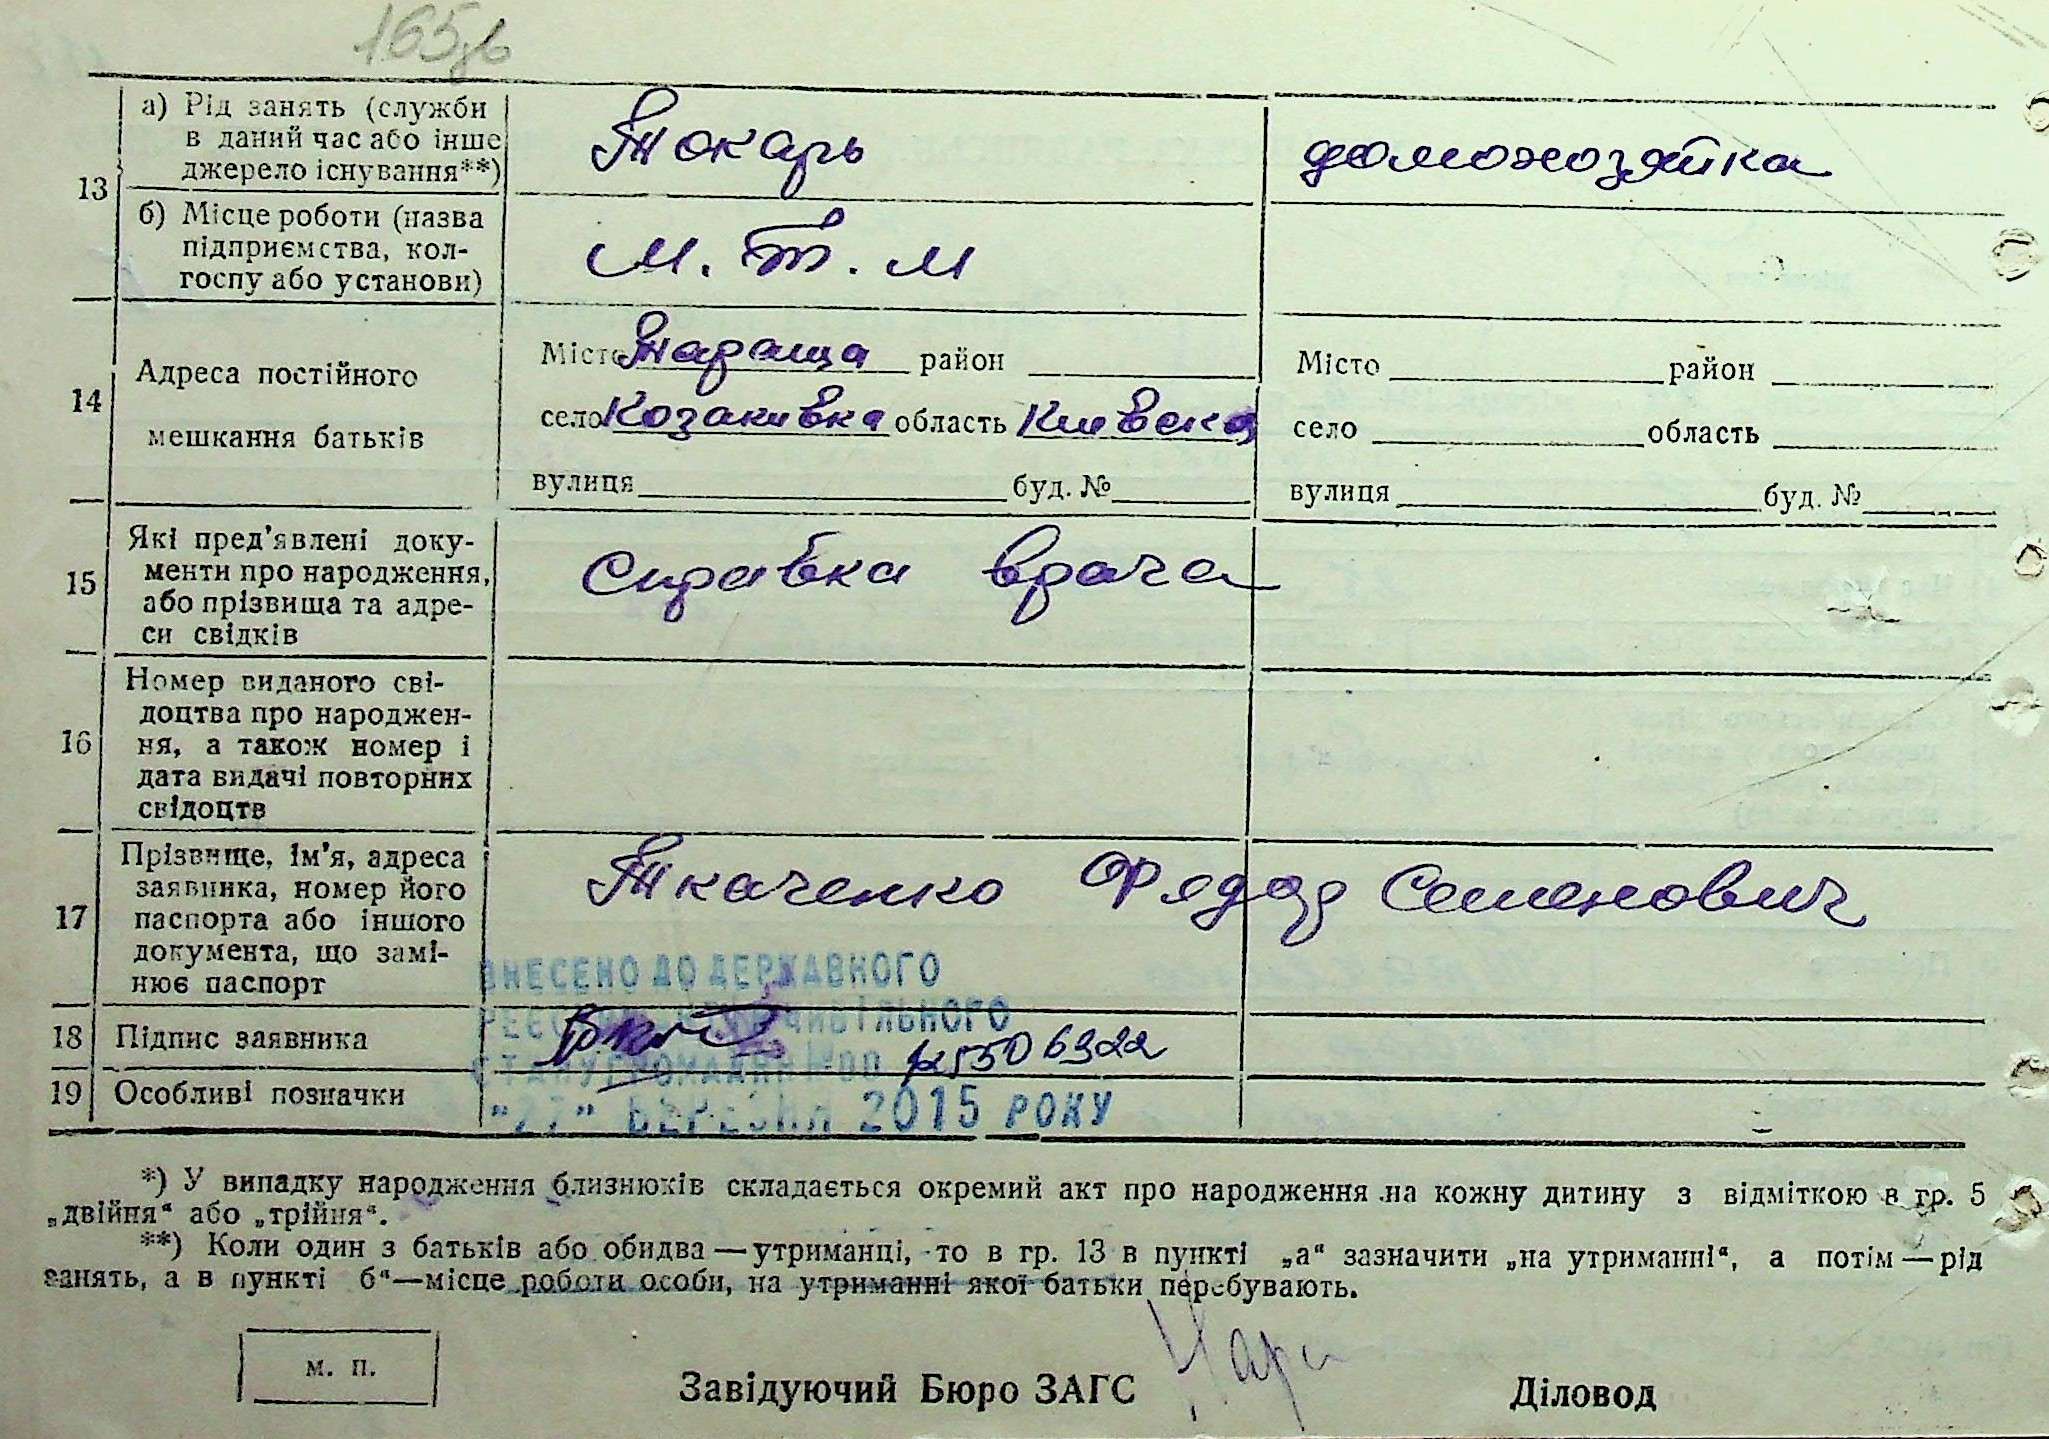 165зв
13 а) Рід занять (служби
в даний час або інше
джерело існування**)
Токарь
домохозяйка
б) Місце роботи (назва
підприємства, кол-
госпу або установи)
М. Т. М
14 Адреса постійного
мешкання батьків
Місто Тараща район
село Козаківка область Київска
вулиця буд. №
Місто район
село область
вулиця буд. №
15 Які пред'явлені доку-
менти про народження,
або прізвища та адре-
си свідків
Справка врача
16 Номер виданого сві-
доцтва про народжен-
ня, а також номер і
дата видачі повторних
свідоцтв
17 Прізвище, ім'я, адреса
заявника, номер його
паспорта або іншого
документа, що замі-
нює паспорт
Ткаченко Фядор Семенович
ВНЕСЕНО ДО ДЕРЖАВНОГО
РЕЄСТРУ ЦИВІЛЬНОГО
18 Підпис заявника
СТАНУ ГРОМАДЯН №00
19 Особливі позначки
"27" БЕРЕЗНЯ 2015 РОКУ
*) У випадку народження близнюків складається окремий акт про народження на кожну дитину з відміткою в гр. 5
„двійня“ або „трійня“.
**) Коли один з батьків або обидва—утриманці, то в гр. 13 в пункті „а“ зазначити „на утриманні“, а потім—рід
занять, а в пункті б“—місце роботи особи, на утриманні якої батьки перебувають.
м. п.
Завідуючий Бюро ЗАГС
Діловод